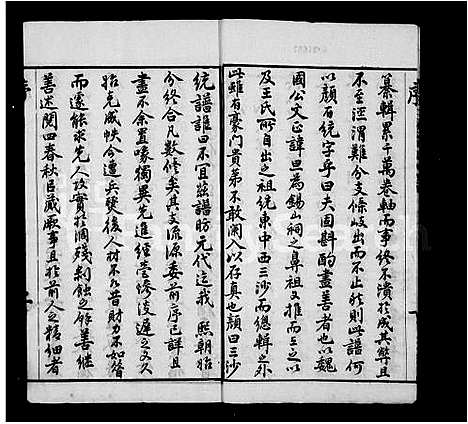 纂輯累千萬卷軸而事終不潰於成其弊且
不至涇渭難分支條岐出而不止然則此譜何
以顏有統字乎曰夫固斟酌盡善者也以魏
國公文正諱旦為錫山祠之鼻祖又推而上之以
及王氏所自出之祖統東中西三沙而總輯之外
此雖有豪門貴弟不敢闌入以存真也顏曰三沙
統譜誰曰不宜茲譜昉元代迄我 熙朝始
分終合凡數修矣其支流源委前序已詳且
盡不余置喙獨異先進經營慘淡遲之又久
始克成帙今遭兵燹後人材不如昔財力不如昔
而遽能求先人故實於凋殘剝蝕之餘善繼
善述閱四春秋臣蕆厥事且於前人之稱細者
序